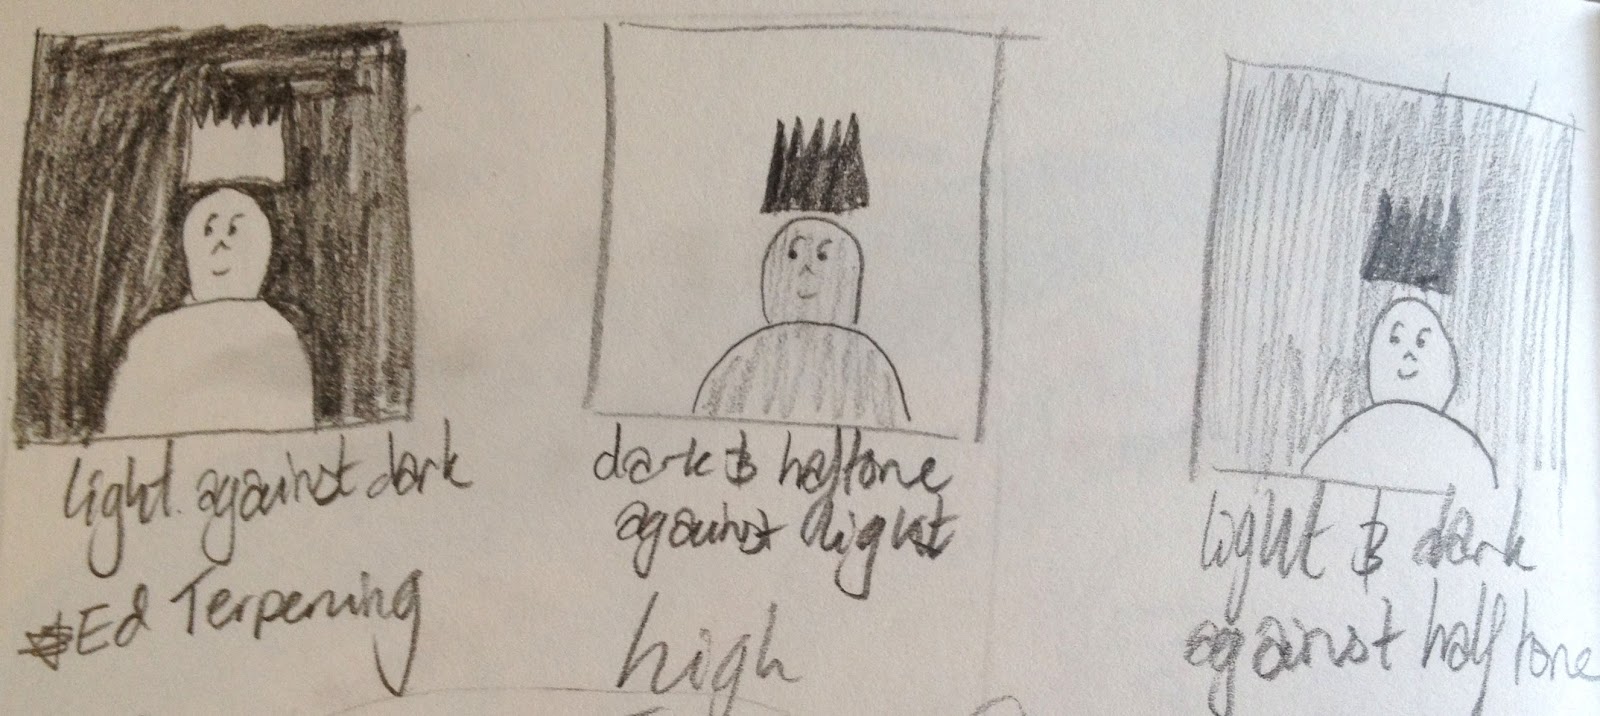 light against dark
Ed Terpening
dark & halftone
against light
high
light & dark
against half tone